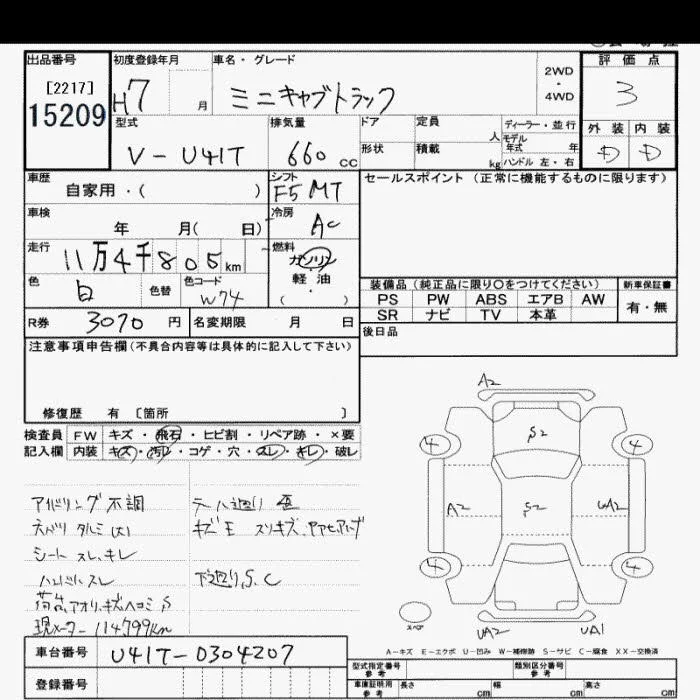 出品番号 初度登録年月 車名・グレード 2WD・4WD 評価点
[2217]
15209 H7 月 ミニキャブトラック 3
型式 排気量 ドア 定員 人 ディーラー・並行 外装 内装
V-U41T 660 cc 形状 積載 kg モデル年式 年 ハンドル 左・右 D D
車歴 自家用・( ) シフト F5 MT セールスポイント (正常に機能するものに限ります)
車検 年 月( 日) 冷房 AC
走行 11万4千805km 燃料 ガソリン
軽油
( ・ )
色 白 色替 色コード W74
装備品 (純正品に限り〇をつけてください) 新車保証書
PS PW ABS エアB AW 有・無
SR ナビ TV 本革
R券 3070 円 名変期限 月 日 後日品
注意事項申告欄(不具合内容等は具体的に記入して下さい)
修復歴 有 〔箇所 〕
検査員 FW キズ・飛石・ヒビ割・リペア跡・×要
記入欄 内装 キズ・汚レ・コゲ・穴・スレ・キレ・破レ
アイドリング不調
天バリ タルミ(大)
シート スレ、キレ
ハンドルスレ
荷台、アオリ、キズヘコミ S
現メーター 114799km
キズ
下廻り、S、C
A2
S2
4 4
A2 S2 UA2
4 4
スペア
UA2 UA1
A-キズ E-エクボ U-凹み W-補修跡 S-サビ C-腐食 XX-交換済
車台番号 U41T-0304207
登録番号
型式指定番号 参考 類別区分番号 参考
車庫証明用 参考 長さ cm 幅 cm 高さ cm